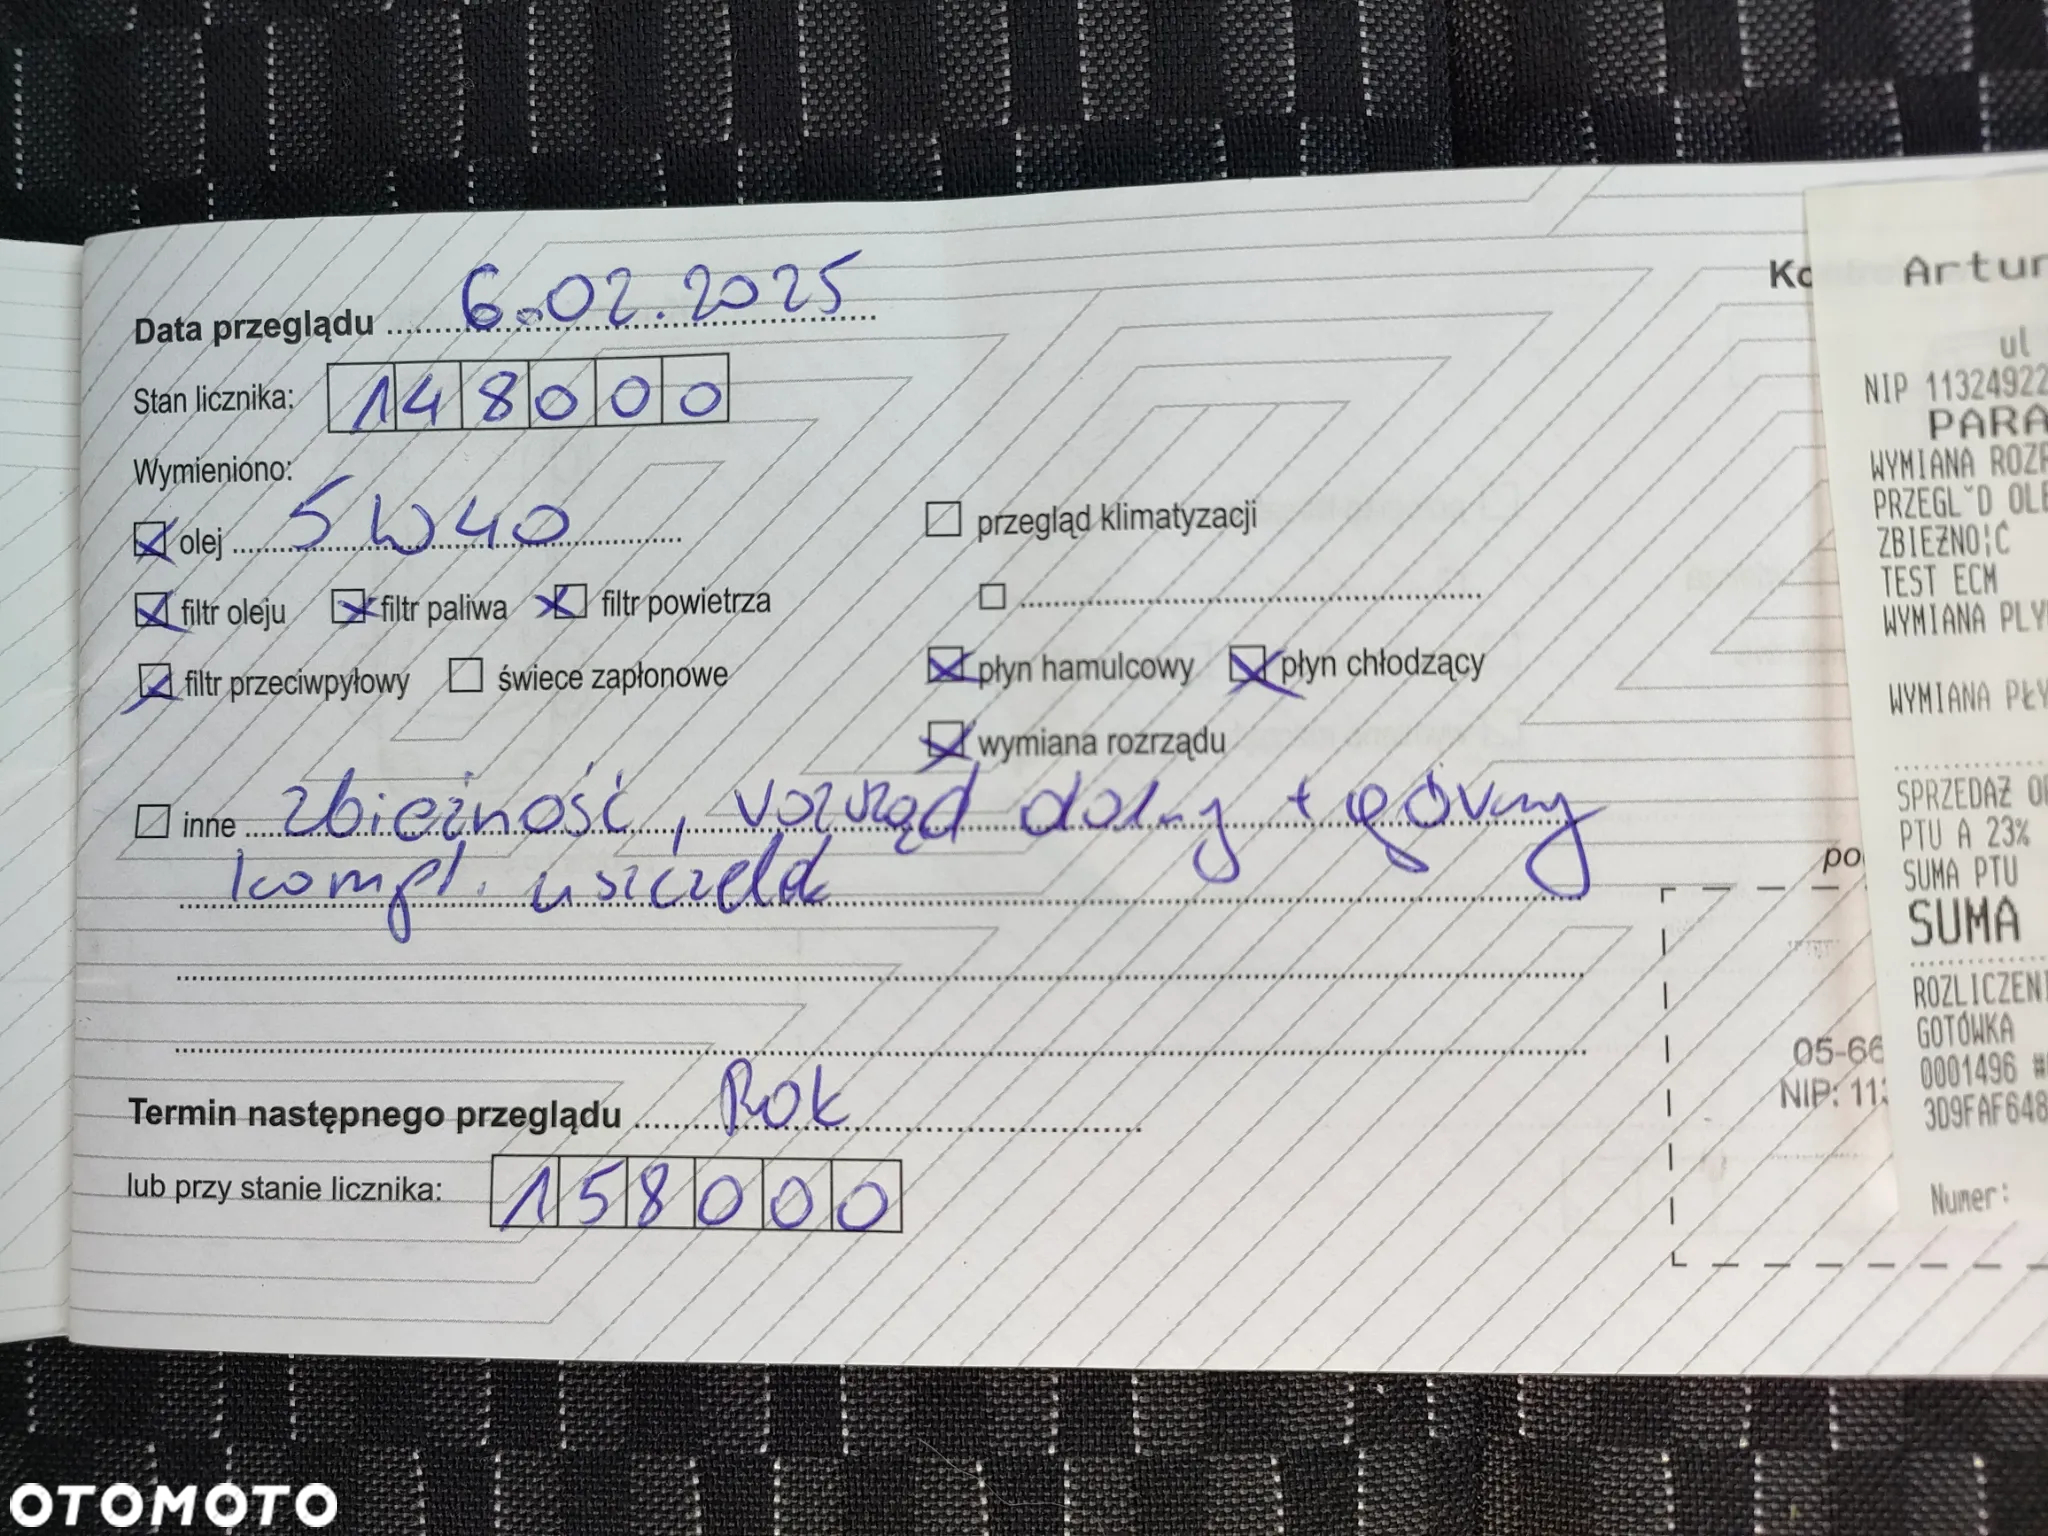 Data przeglądu 6.02.2025
Stan licznika: 148000
Wymieniono:
olej 5W40
filtr oleju filtr paliwa filtr powietrza
filtr przeciwpyłowy świece zapłonowe
przegląd klimatyzacji
płyn hamulcowy płyn chłodzący
wymiana rozrządu
inne zbieżność, rozrząd dolny + górny
kompl. uszczelek
Termin następnego przeglądu Rok
lub przy stanie licznika: 158000
05-66
NIP: 113
Artur
ul
NIP 11324922
PARA
WYMIANA ROZR
PRZEGLˇD OLE
ZBIEŻNO¦Ć
TEST ECM
WYMIANA PLY
WYMIANA PŁY
SPRZEDAŻ O
PTU A 23%
SUMA PTU
SUMA
ROZLICZENI
GOTÓWKA
0001496
3D9FAF648
Numer:
OTOMOTO